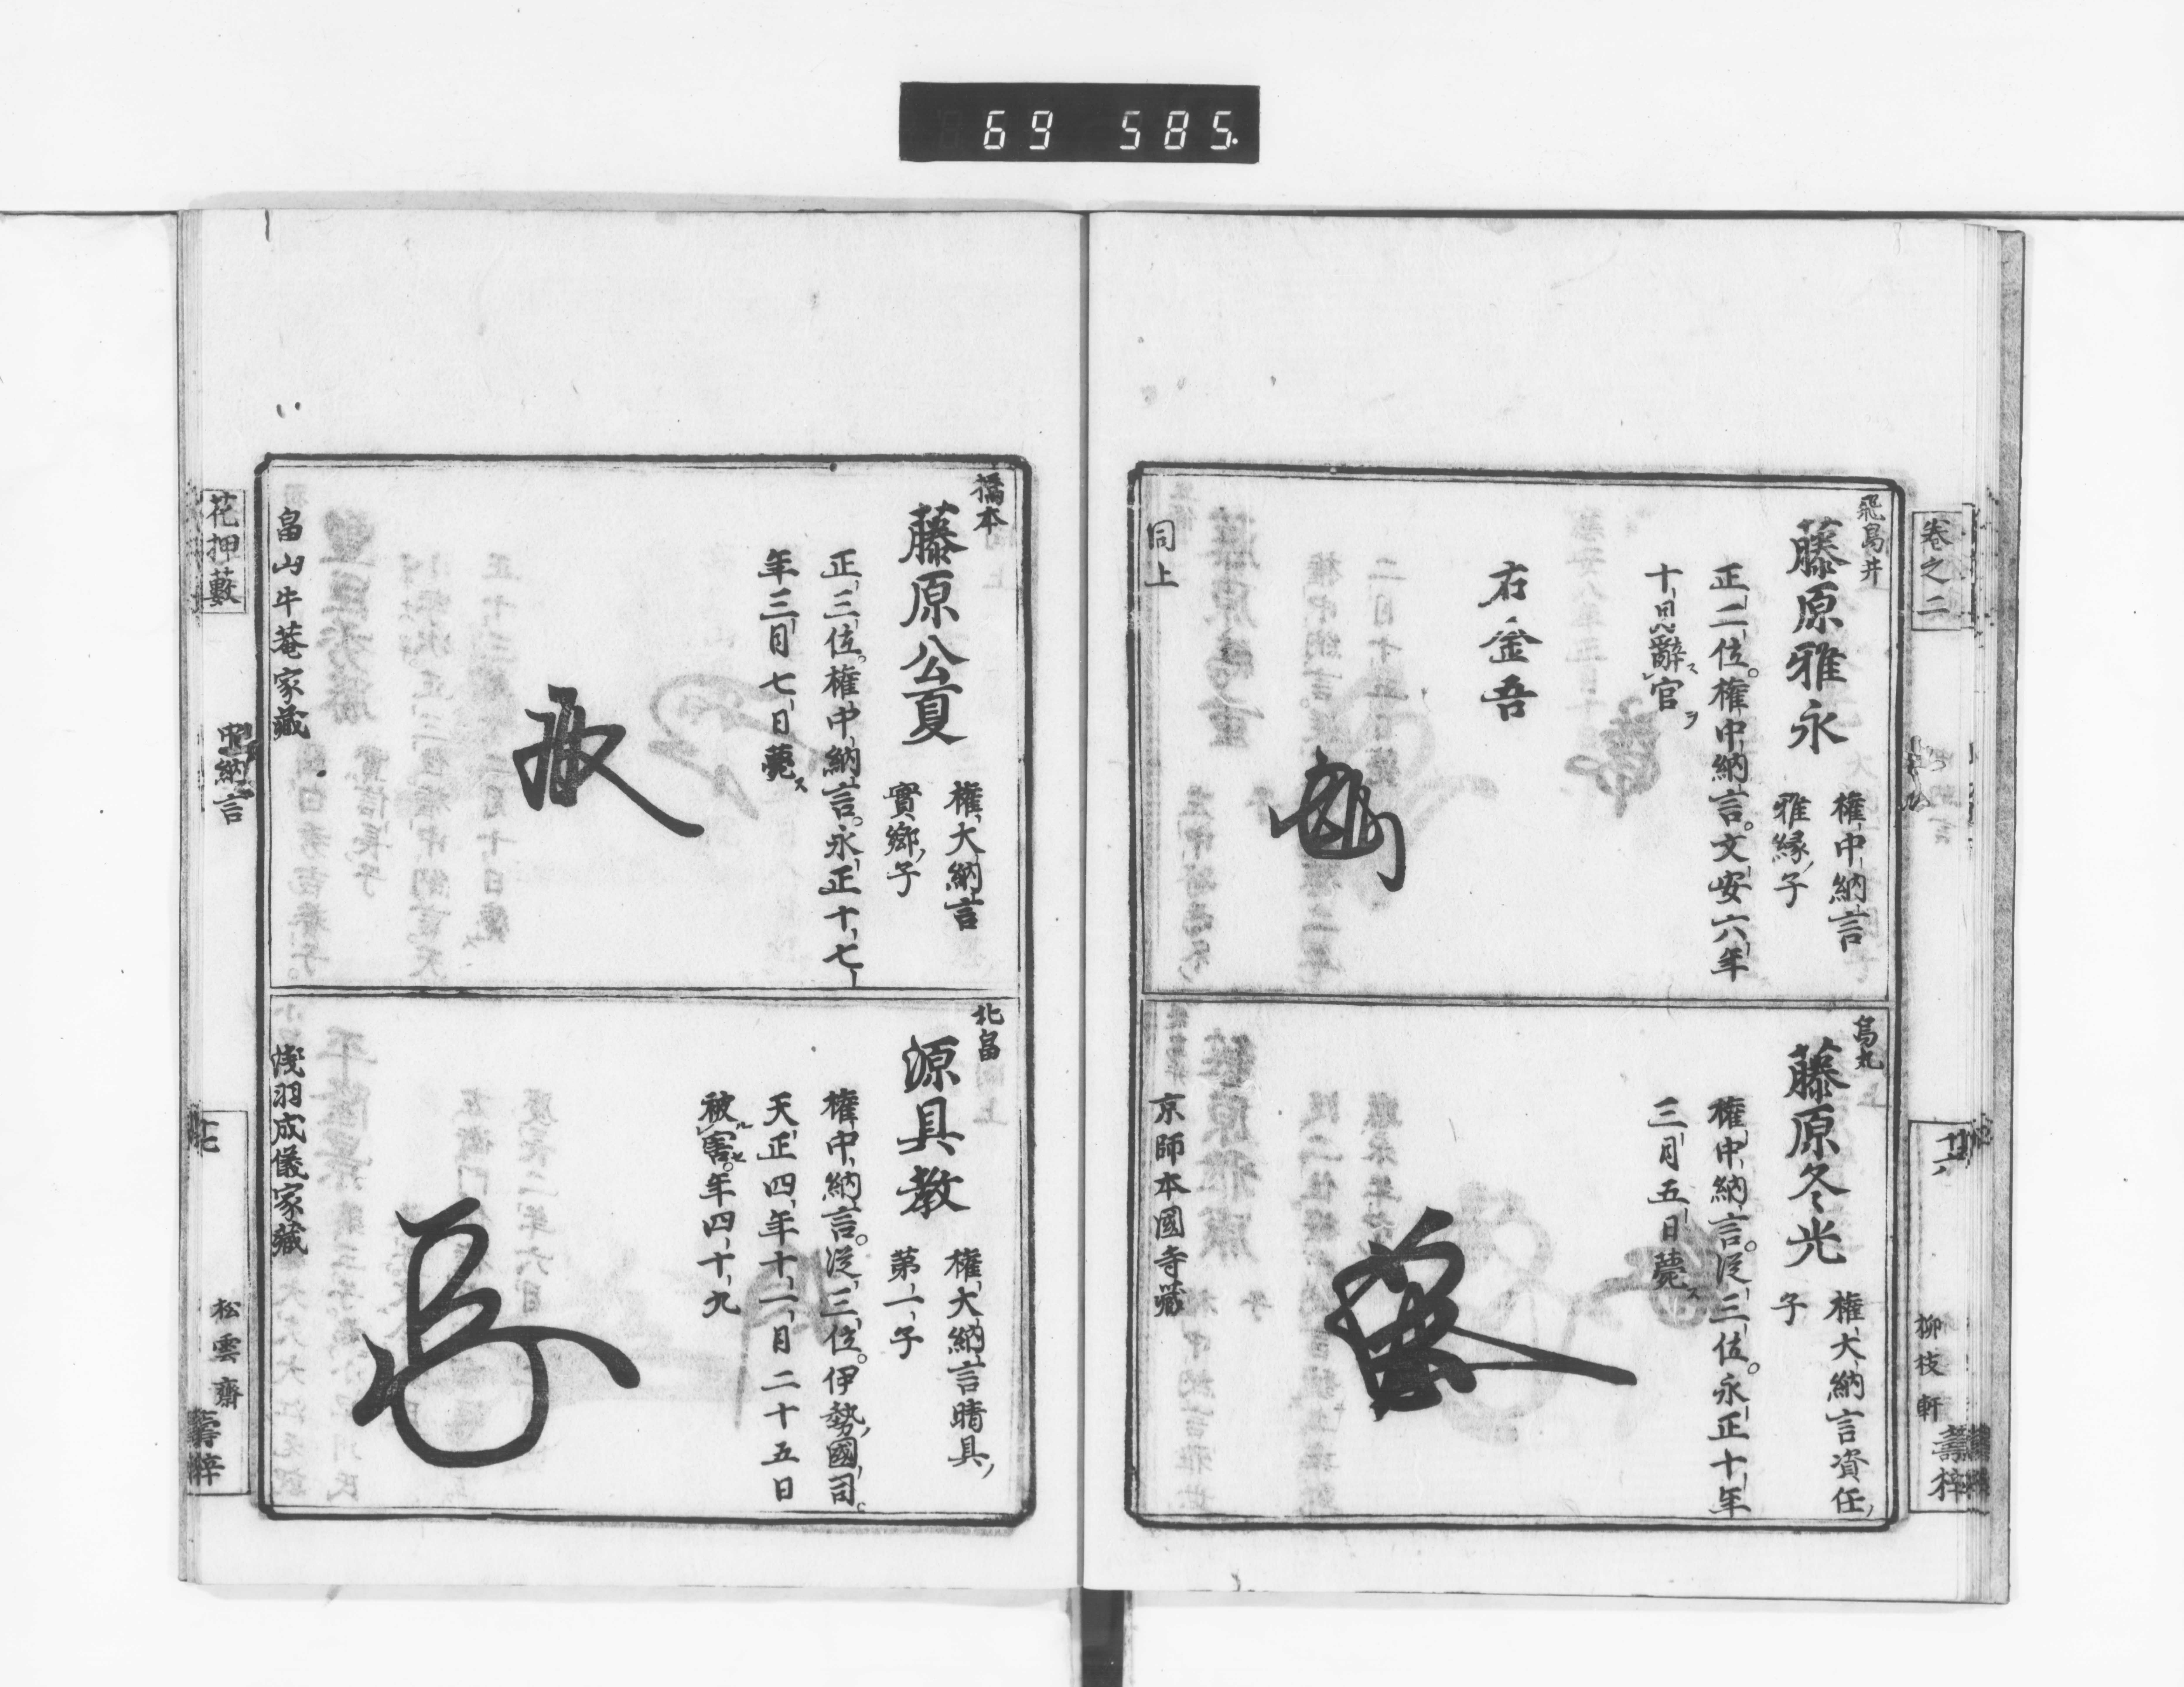 69 585.
卷之二
柳枝軒
壽梓
飛鳥井
藤原雅永
權中納言
雅縁子
正二位。權中納言。文安六年
十月辭ス官ヲ
右金吾
同上
烏丸
藤原冬光
權大納言資任
子
權中納言。從三位。永正十年
三月五日薨ス
京師本國寺藏
橋本
藤原公夏
權大納言
實鄉子
正三位。權中納言。永正十七
年三月七日薨ス
畠山牛菴家藏
北畠
源具教
權大納言晴具
第一子
權中納言。從三位。伊勢國司。
天正四年十二月二十五日
被ル害セ。年四十九
淺羽成儀家藏
花押藪
中納言
松雲齋
壽梓